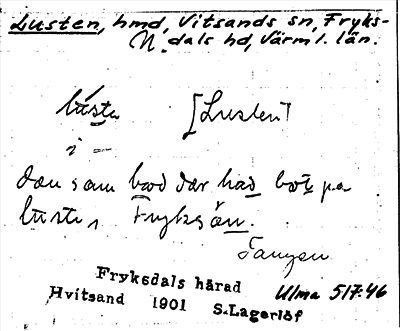 Lusten, hmd, Vitsands sn, Fryks-
N. dals hd, Värml. län.
lùstn [Lusten]
i =
den som bod där had båt på
lustn, Fryksån.
Torpen
Fryksdals härad
Hvitsand 1901 S.Lagerlöf
Ulma 517:46